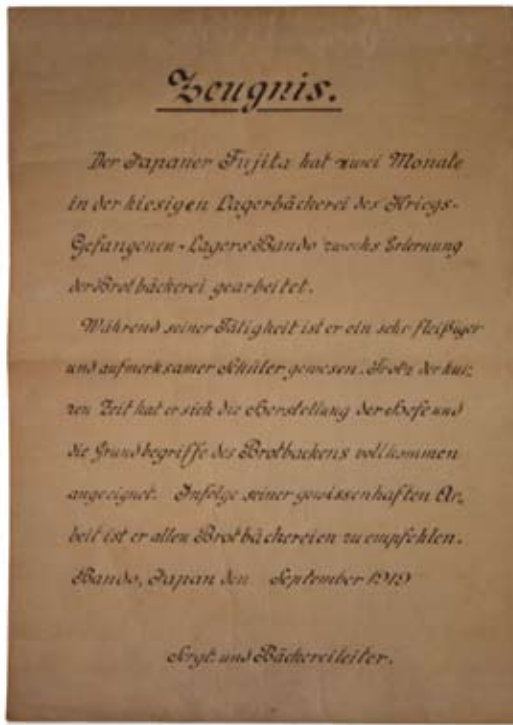 Zeugnis.
Der Japaner Fujita hat zwei Monate
in der hiesigen Lagerbäckerei des Kriegs-
Gefangenen-Lagers Bando zwecks Erlernung
der Brotbäckerei gearbeitet.
Während seiner Tätigkeit ist er ein sehr fleißiger
und aufmerksamer Schüler gewesen. Trotz der kur-
zen Zeit hat er sich die Herstellung der Hefe und
die Grundbegriffe des Brotbackens vollkommen
angeeignet. Infolge seiner gewissenhaften Ar-
beit ist er allen Brotbäckereien zu empfehlen.
Bando, Japan den September 1919
Sergt. und Bäckereileiter.